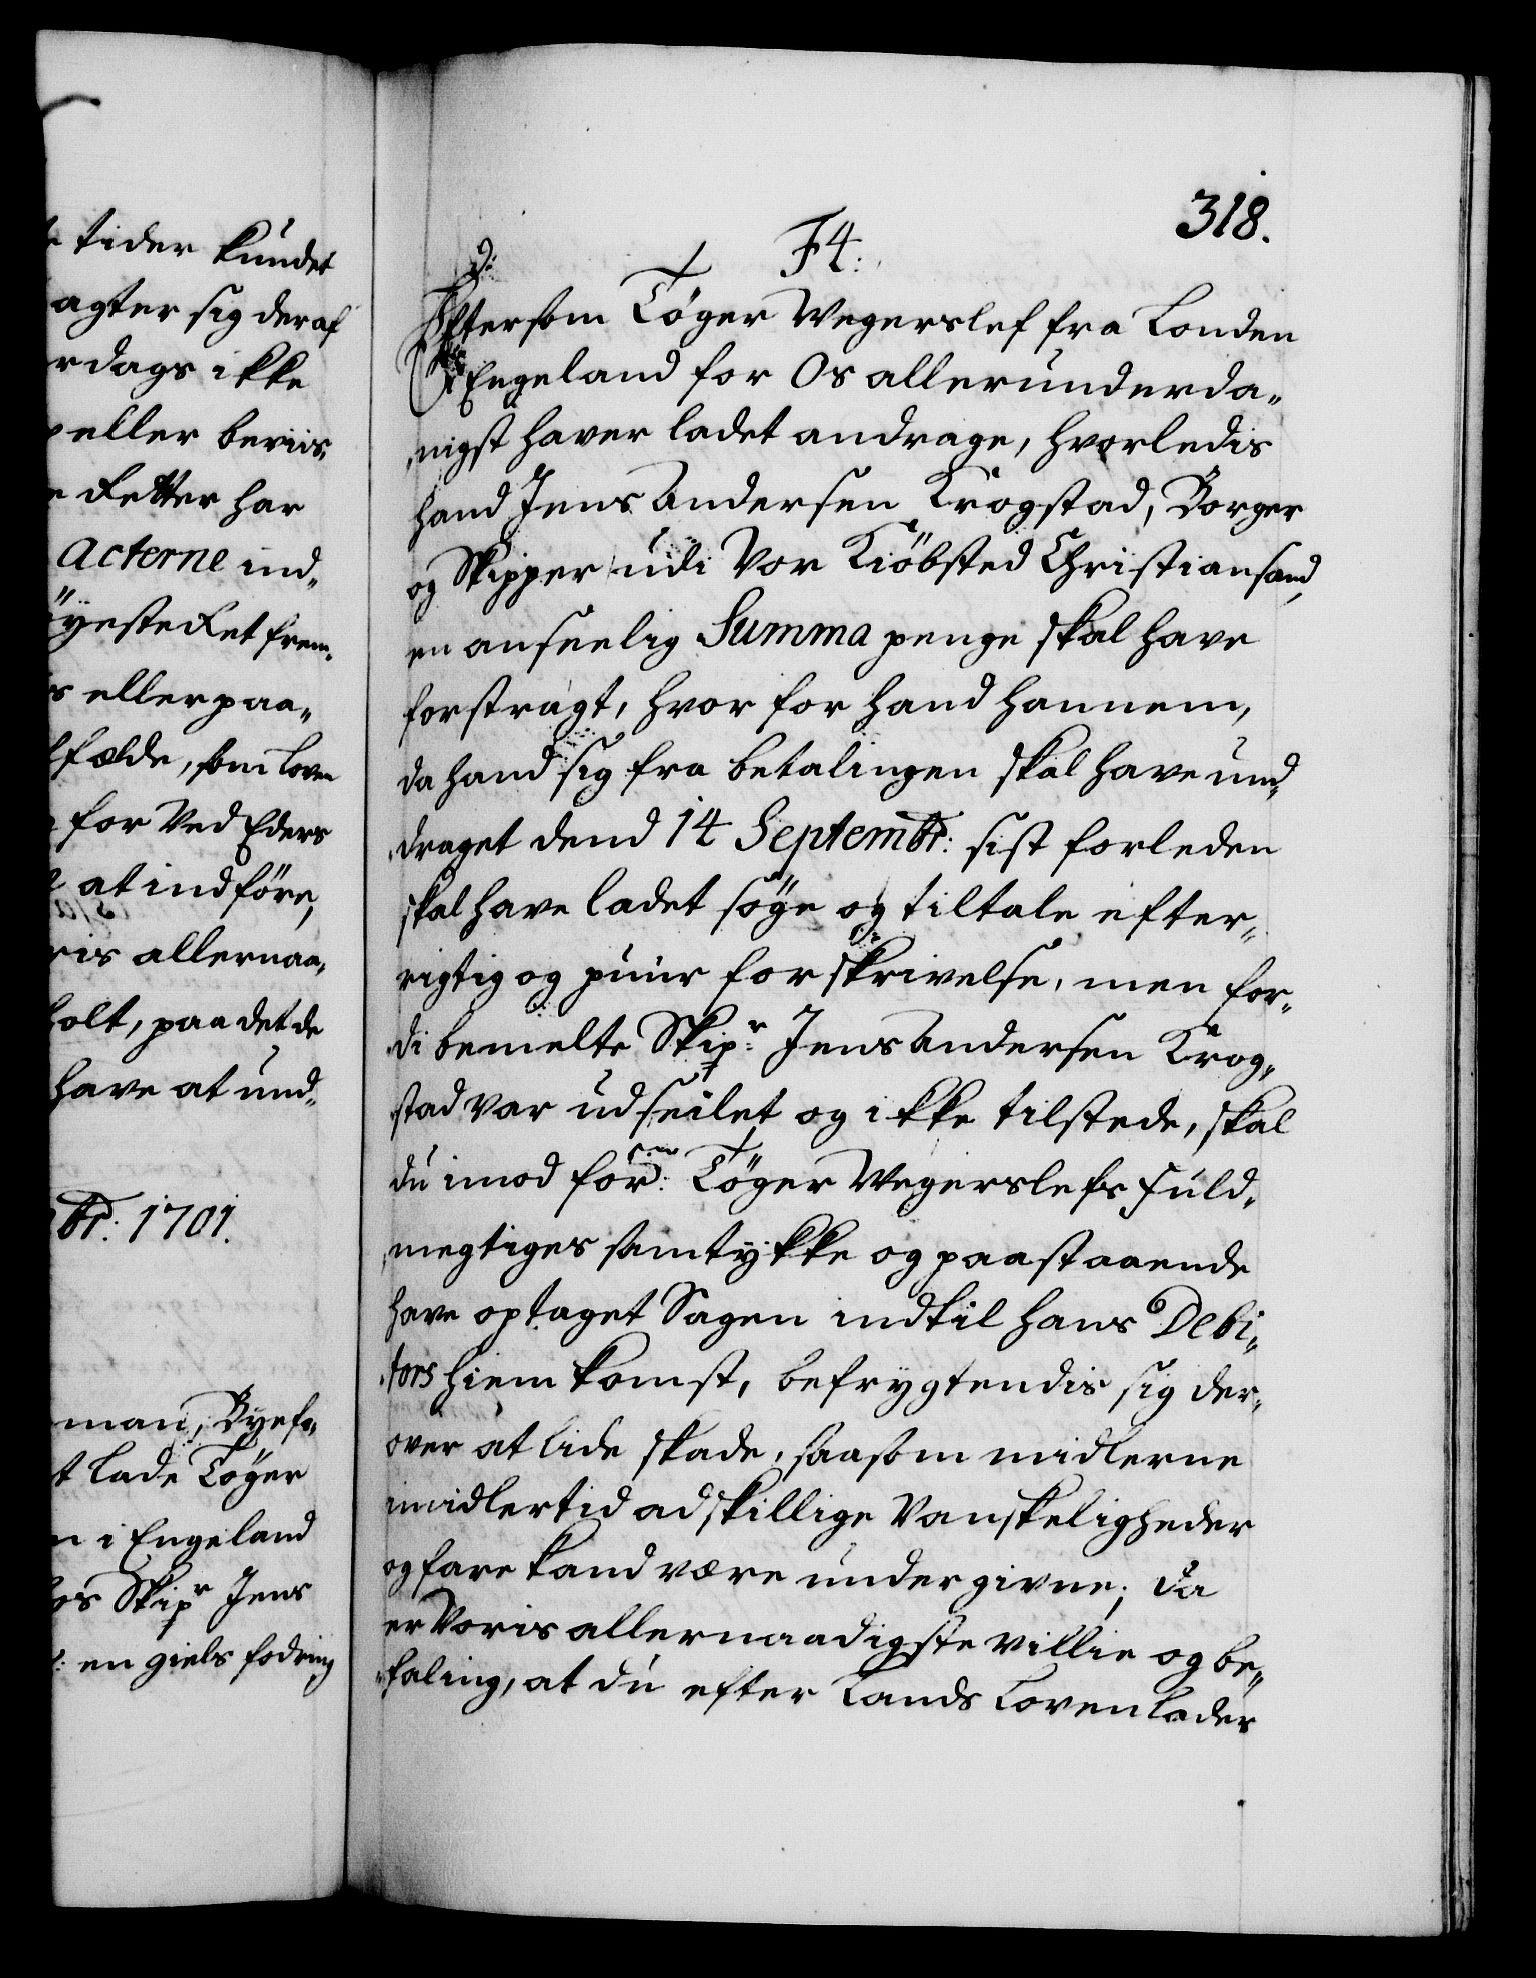 tider kundet
agter sig der af
rdags ikke
eller beviis,
Retter har
Acterne ind„
ÿeste Ret frem„
eller paa„
fælde, som Loven
for Ved Eders
at indföre,
ris allernaa„
holt, paa det de
have at und„
br: 1701.
man, Byefo„
t lade Töger
n i Engeland
os Skipr Jens
en giels fodring
318.
F4:
Eftersom Töger Wegerslef fra Londen
i Engeland for Os allerunderda„
nigst haver ladet andrage, hvorledis
hand Jens Andersen Krogstad, Borger
og Skipper udi Vor Kiöbsted Christiansand,
en anseelig Summa penge skal have
forstragt, hvor for hand hannem,
da hand sig fra betalingen skal have und„
draget dend 14 Septembr: sist forleden
skal have ladet söge og tiltale efter„
rigtig og puur forskrivelse, men for„
di bemelte Skipr: Jens Andersen Krog„
stad var udseilet og ikke tilstede, skal
du imod forne: Töger Wegerslefs fuld„
megtiges samtÿkke og paastaaende
have optaget Sagen indtil hans Debi„
tors hiemkomst, befrygtendis sig der„
over at lide skade, saasom midlerne
imidlertid adskillige Vanskeligheder
og fare kand være undergivne; Da
er Voris allernaadigste villie og be„
faling, at du efter Lands Loven lader